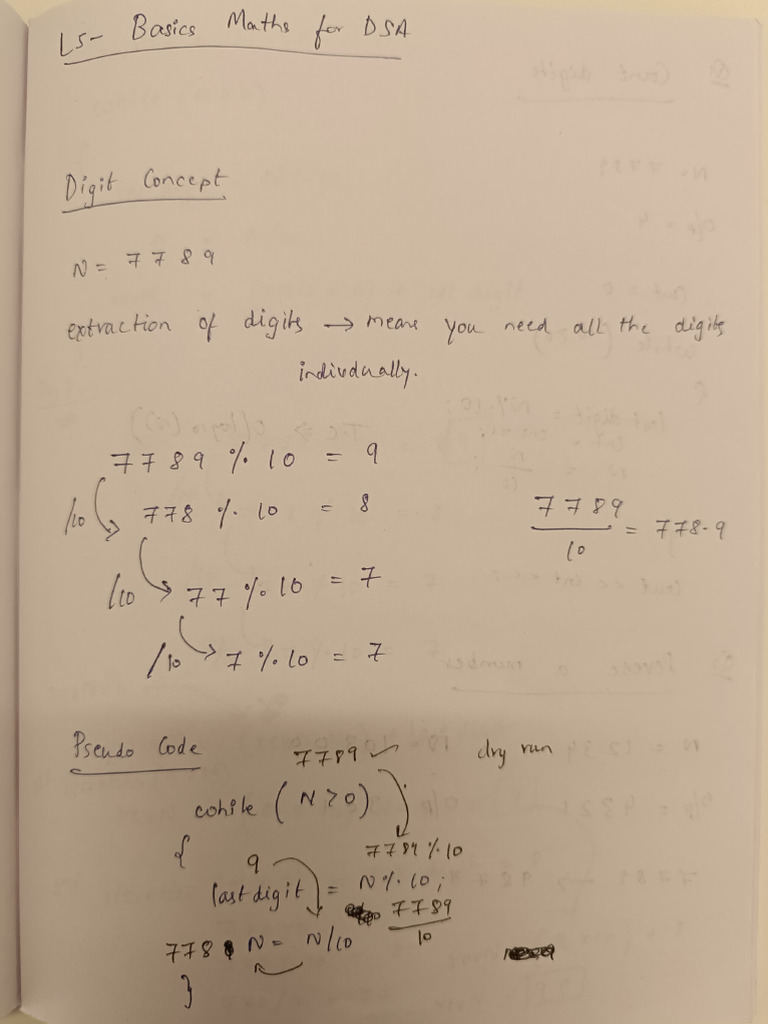 L5- Basics Maths for DSA
Digit Concept
N = 7789
extraction of digits → means you need all the digits
indivdually.
7789 % 10 = 9
/10 778 % 10 = 8
7789/10 = 778.9
/10 77 % 10 = 7
/10 7 % 10 = 7
Pseudo Code
7789 ✓ dry run
while (N > 0)
{
7789 % 10
9
last digit = N % 10;
7789/10
778 N = N/10
}